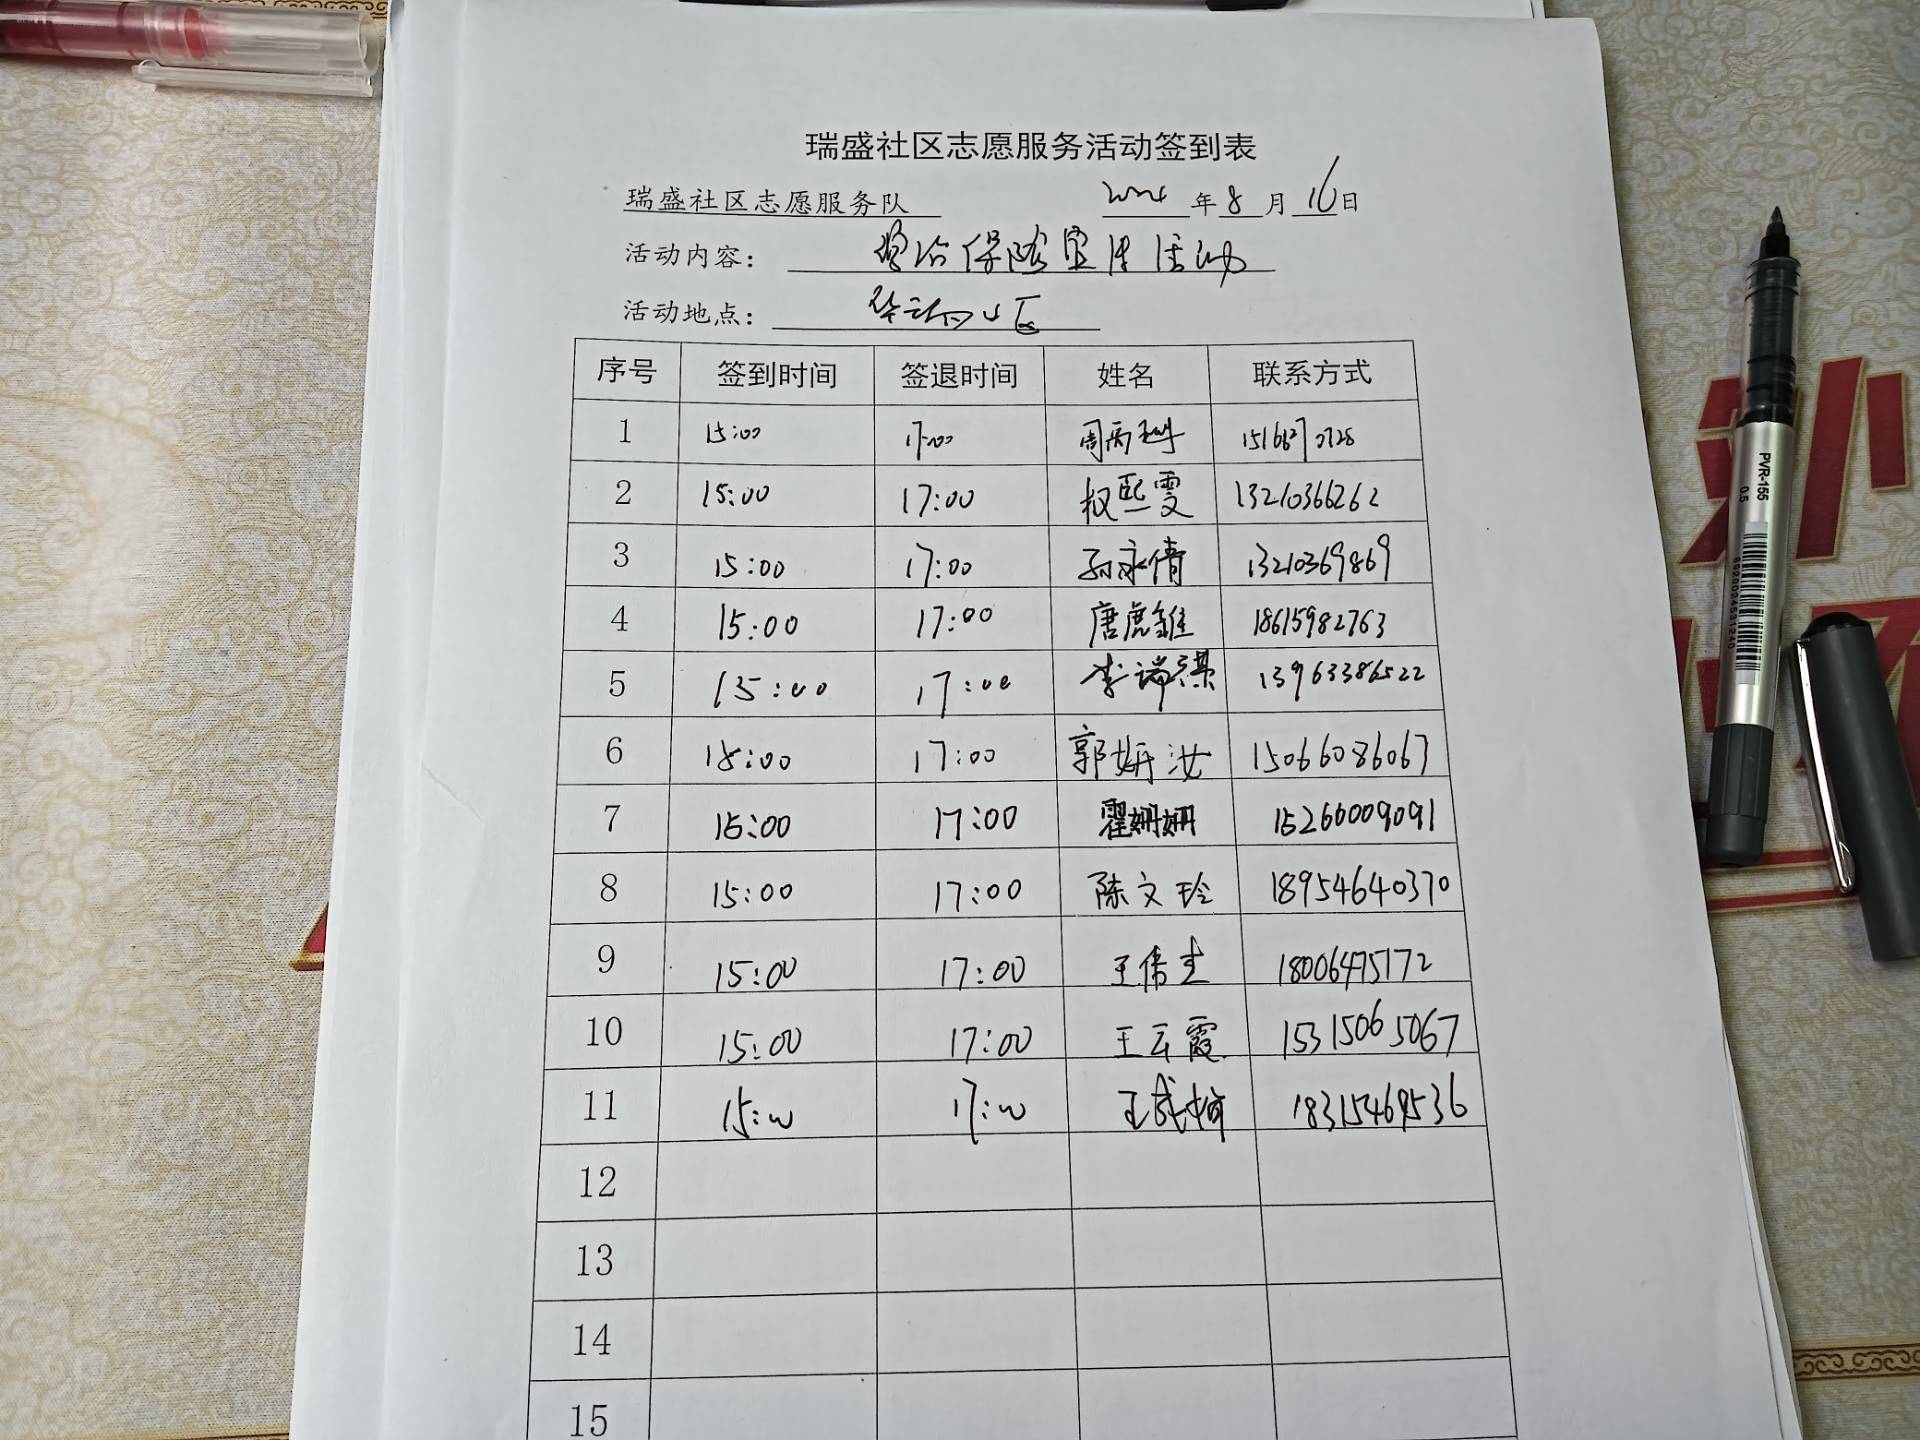 瑞盛社区志愿服务活动签到表
瑞盛社区志愿服务队 2024 年 8 月 16 日
活动内容： 保险宣传活动
活动地点： 小区
序号 签到时间 签退时间 姓名 联系方式
1 15:00 17:00 周雨
2 15:00 17:00 权熙雯 13210366262
3 15:00 17:00 孙永倩 13210369869
4 15:00 17:00 唐虎雏 18615982763
5 15:00 17:00 李瑞祺 13963386522
6 15:00 17:00 郭妍汝 15066086067
7 15:00 17:00 翟姗姗 15266009091
8 15:00 17:00 陈文玲 18954640370
9 15:00 17:00 王伟志 18006475172
10 15:00 17:00 王云霞 15315065067
11 15:00 17:00 王 18315469536
12
13
14
15
PVR-155
0.5
6920024531240